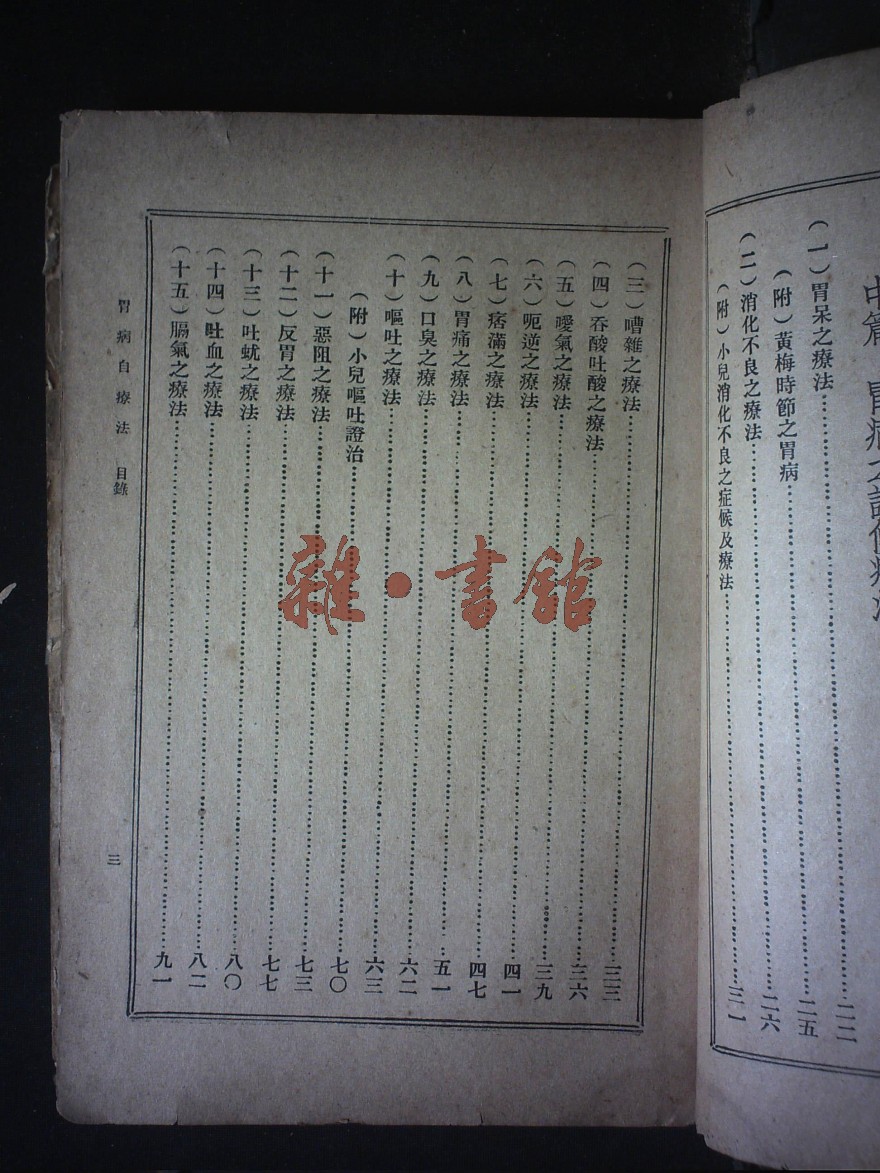 中篇　胃病之
（一）胃呆之療法……二二
（附）黃梅時節之胃病……二五
（二）消化不良之療法……二六
（附）小兒消化不良之症候及療法……三一
（三）嘈雜之療法……三三
（四）吞酸吐酸之療法……三六
（五）噯氣之療法……三九
（六）呃逆之療法……四一
（七）痞滿之療法……四七
（八）胃痛之療法……五一
（九）口臭之療法……六二
（十）嘔吐之療法……六三
（附）小兒嘔吐證治……七〇
（十一）惡阻之療法……七三
（十二）反胃之療法……七七
（十三）吐蚘之療法……八〇
（十四）吐血之療法……八二
（十五）膈氣之療法……九一
胃病自療法　目錄
三
雜·書館